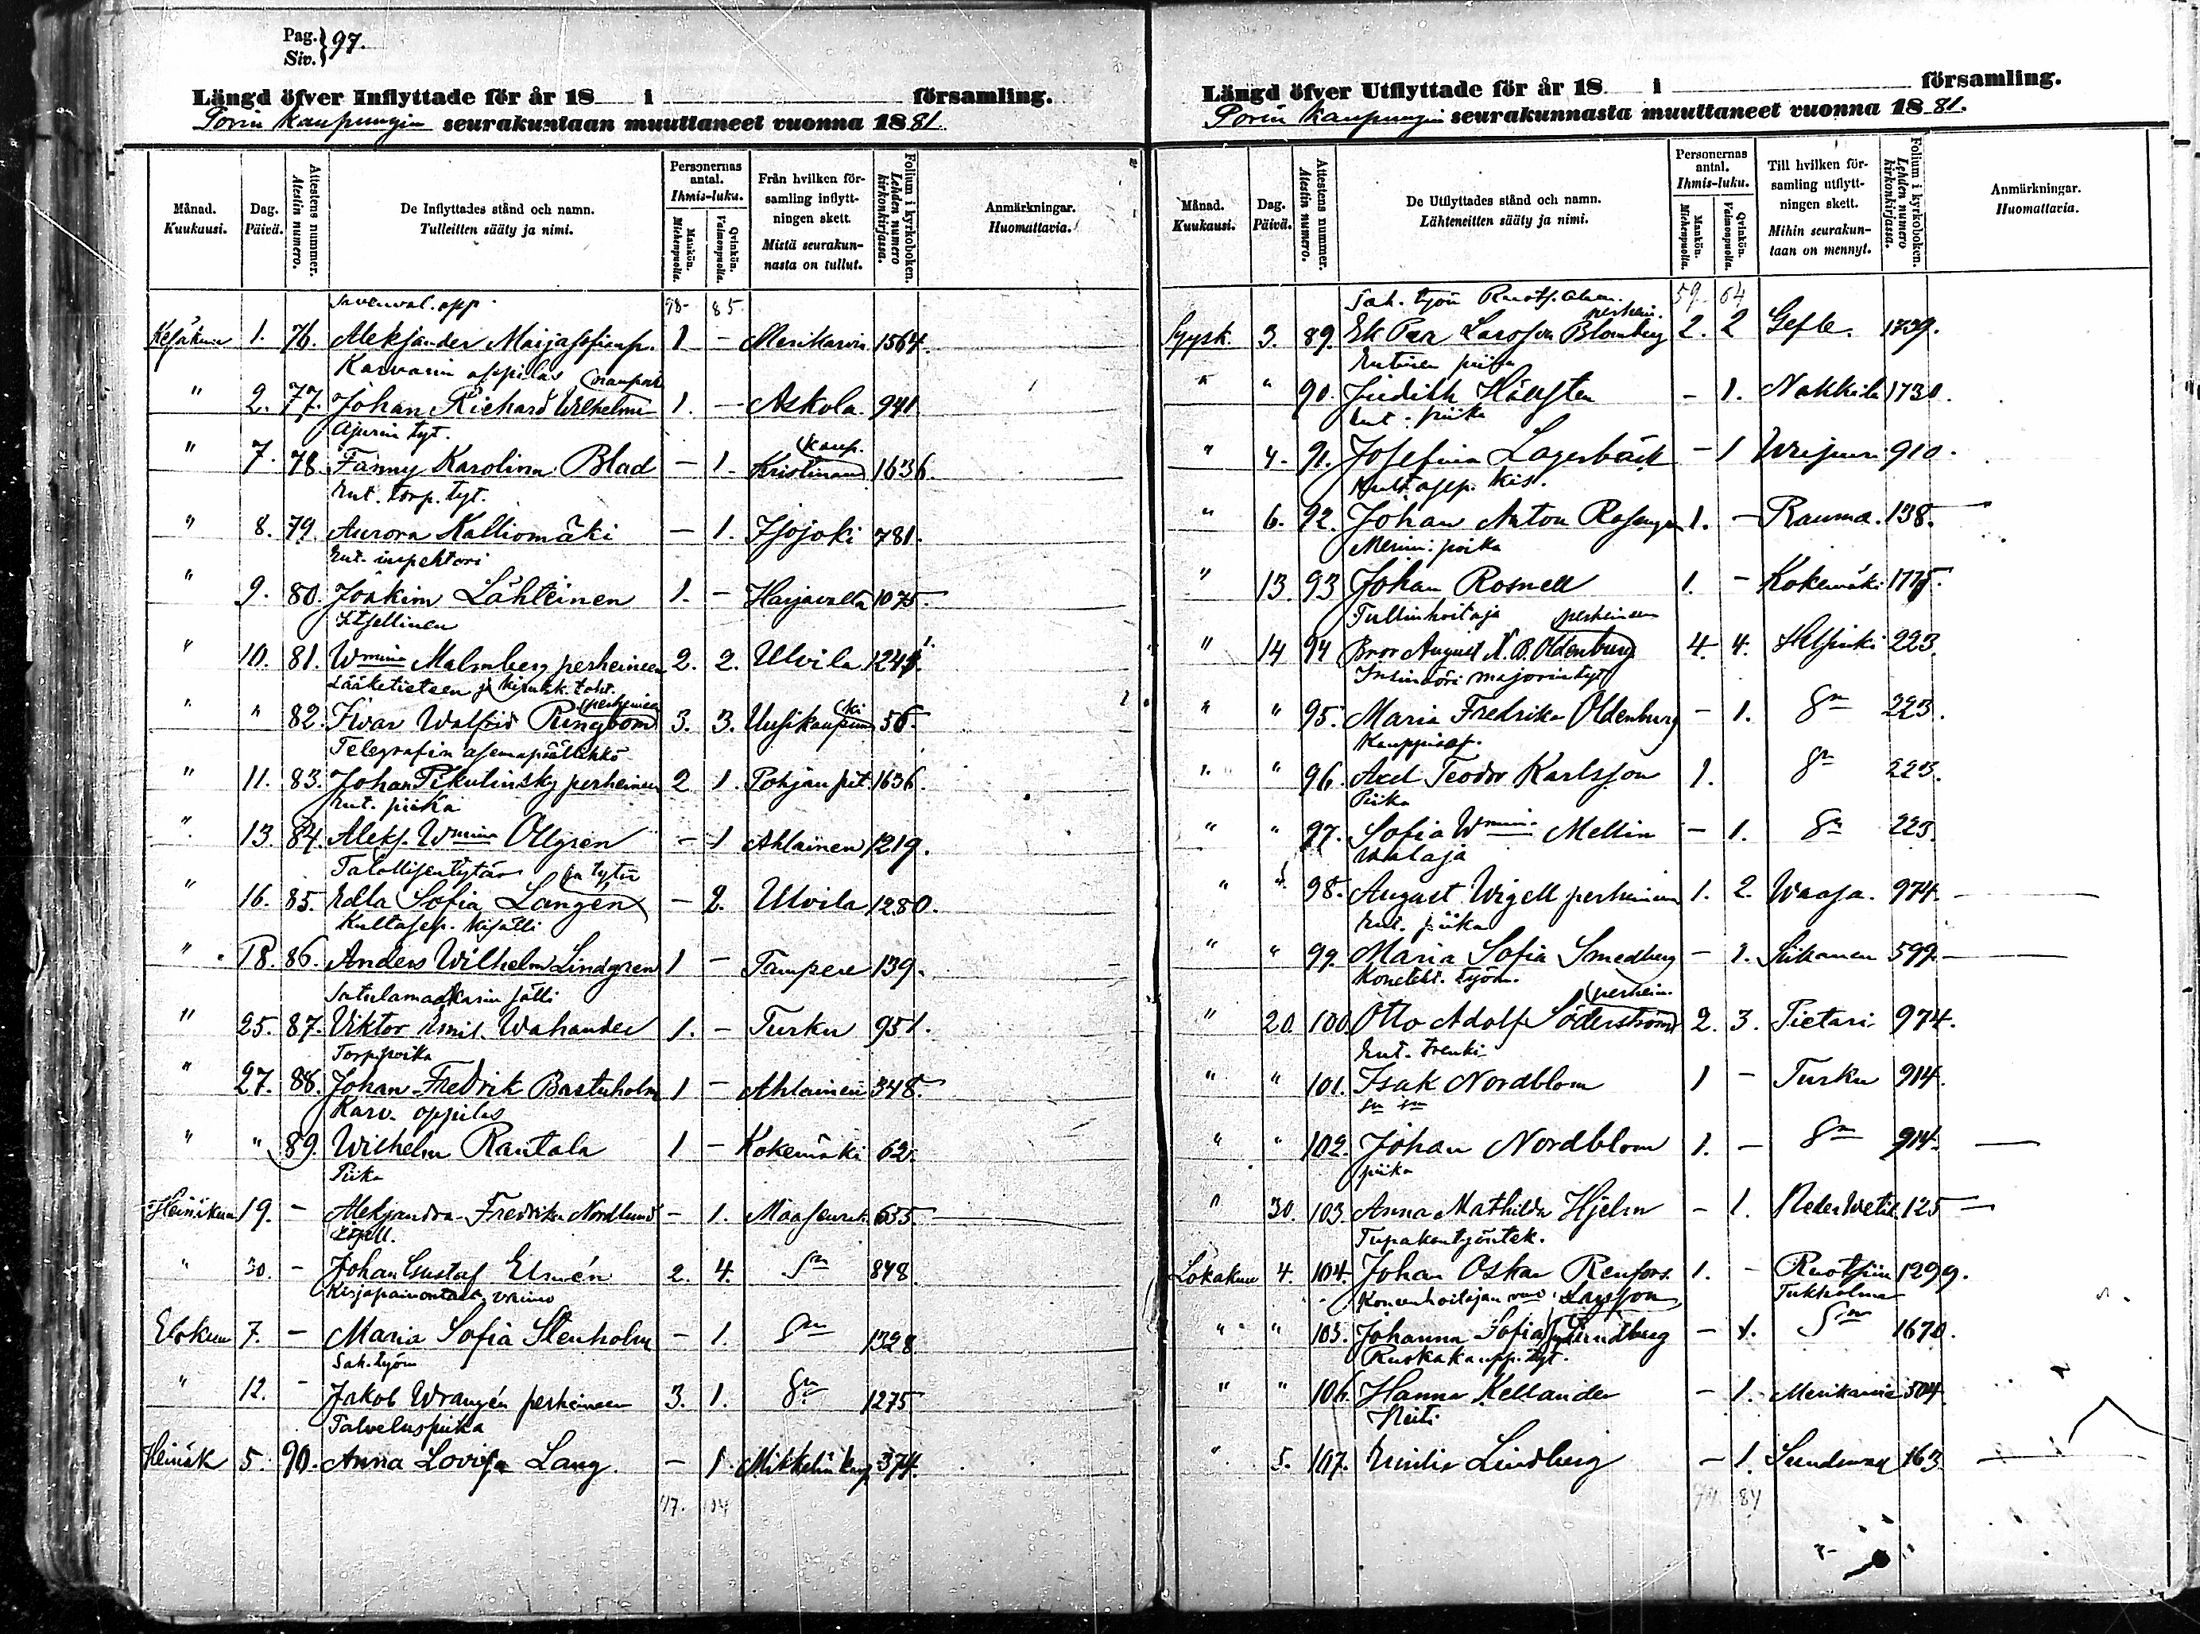 Pag. } 97.
Siv.
Längd öfver Inflyttade för år 18 i församling.
Porin kaupungin seurakuntaan muuttaneet vuonna 1881.
Månad. Kuukausi. Dag. Päivä. Attestens nummer. Atestin numero. De Inflyttades stånd och namn. Tulleitten sääty ja nimi. Personernas antal. Ihmis-luku. Mankön. Miehenpuolia. Qvinkön. Vaimonpuolia. Från hvilken församling inflyttningen skett. Mistä seurakunnasta on tullut. Folium i kyrkoboken. Lehden numero kirkonkirjassa. Anmärkningar. Huomattavia.
98 85
Kesäkuu 1. 76. Aleksander Maijasefinp. 1 - Merikarvia 1564.
Karvarin oppilas
" 2. 77. Johan Richard Wilhelm 1. - Askola 941
Ajurin tyt.
" 7. 78 Fanny Karolina Blad - 1. Kristinank 1636.
Ent. torp. tyt.
" 8. 79. Aurora Kalliomäki - 1. Isojoki 781.
Ent. inspehtori
" 9. 80. Joakim Lähteinen 1. - Harjavalta 1075.
Itsellinen
" 10. 81. Wmina Malmberg perheineen 2. 2. Ulvila 1249
Lääketieteen ja kirurk. toht. perheineen
" " 82. Ivar Walfrid Ringbom 3. 3. Uusikaupunki 56.
Telegrafin asemapäällikkö
" 11. 83. Johan Pikulinsky perheineen 2 1. Pohjan pit. 1636.
Ent. piika
" 13. 84. Aleks. Wmina Ollgren - 1 Ahlainen 1219.
Talollisentytär ja tytär
" 16. 85. Edla Sofia Langén - 2. Ulvila 1280.
Kultasep. kisälli
" 18. 86. Anders Wilhelm Lindgren 1 - Tampere 139.
Satulamaakarin sälli
" 25. 87. Viktor Emil Wahander 1. - Turku 951.
Torp. poika
" 27. 88. Johan Fredrik Bastuholm 1 - Ahlainen 348.
Karv. oppilas
" " 89. Wilhelm Rantala 1 - Kokemäki 62.
Piika
Heinäkuu 19. - Aleksandra Fredrika Nordlund - 1. Maaseurak 655
Itsell.
" 30. - Johan Gustaf Elmén 2. 4. Sm 848
Kirjapainontait. vaimo
Elokuu 7. - Maria Sofia Stenholm - 1. Sm 1328
Sah. työm
" 12. - Jakob Wrangén perheineen 3. 1. Sm 1275
Palveluspiika
Heinäk 5. 90. Anna Lovisa Lang. - 1. Mikkelin kaup 374.
17. 104
Längd öfver Utflyttade för år 18 i församling.
Porin kaupungin seurakunnasta muuttaneet vuonna 1881.
Månad. Kuukausi. Dag. Päivä. Attestens nummer. Atestin numero. De Utflyttades stånd och namn. Lähteneitten sääty ja nimi. Personernas antal. Ihmis-luku. Mankön. Miehenpuolia. Qvinkön. Vaimonpuolia. Till hvilken församling utflyttningen skett. Mihin seurakuntaan on mennyt. Folium i kyrkoboken. Lehden numero kirkonkirjassa. Anmärkningar. Huomattavia.
Sah. työm Ruots. alam. perhein. 59. 64
Syysk. 3. 89. Ek Per Larsson Blomberg 2. 2 Gefle. 1739.
Entinen piika
" " 90. Judith Häggsten - 1. Nakkila 1730.
Ent. piika
" 4. 91. Josefina Lagerbäck - 1 Wiipuri 910.
Kultasep. kis.
" 6. 92. Johan Anton Rosengren 1. - Rauma. 138.
Merim. poika
" 13. 93 Johan Rosnell 1. - Kokemäki 1775.
Tullinhoitaja perheineen
" 14 94 Bror August N. B. Oldenburg 4. 4. Helsinki 223.
Insinööri majorin tyt
" " 95. Maria Fredrika Oldenburg - 1. Sm 223.
Kauppias.
" " 96. Axel Teodor Karlsson 1. Sm 223.
Piika
" " 97. Sofia Wmina Mellin - 1. Sm 223.
" " 98. August Wigell perheineen 1. 2. Waasa. 974.
Ent. piika
" " 99. Maria Sofia Smedberg - 1. Siikainen 599.
Koneteht. työm. perhein.
" 20. 100. Otto Adolf Söderström 2. 3. Pietari 974.
Ent. trenki
" " 101. Isak Nordblom 1 - Turku 914.
Sm Sm
" " 102. Johan Nordblom 1. - Sm 914.
piika
" 30. 103. Anna Mathilda Hjelm - 1. Neder Wetil 125
Tupakantyöntek.
Lokakuu 4. 104. Johan Oskar Renfors 1. - Ruotsiin 1299.
Konenhoitajan vmo Larsson Tukholma
" " 105. Johanna Sofia Lundberg - 1. Sm 1670.
Ruskakaupp. tyt.
" " 106. Hanna Kellander - 1. Merikarvia 504.
Neiti
" 5. 107. Emilia Lindberg - 1. Sundsvall 163.
74. 84